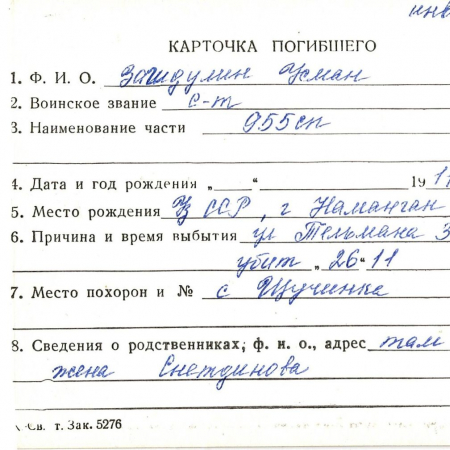 инв
КАРТОЧКА ПОГИБШЕГО
1. Ф. И. О. Зайдулин Усман
2. Воинское звание с-т
3. Наименование части 955сп
4. Дата и год рождения „ “ 1911
5. Место рождения Уз ССР, г Наманган
6. Причина и время выбытия ул Тельмана 3
убит „26“ 11
7. Место похорон и № с Щучинка
8. Сведения о родственниках; ф. и. о., адрес там
жена Снетдинова
Св. т. Зак. 5276